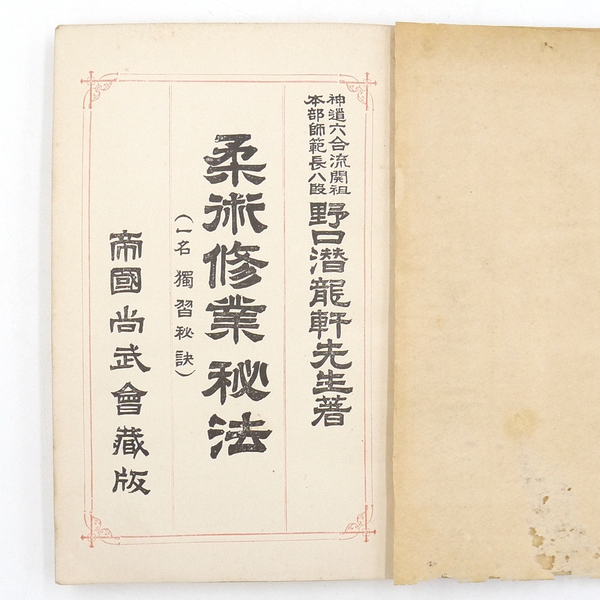 神道六合流開祖
本部師範長八段
野口潜龍軒先生著
柔術修業秘法
(一名 獨習秘訣)
帝國尚武會藏版